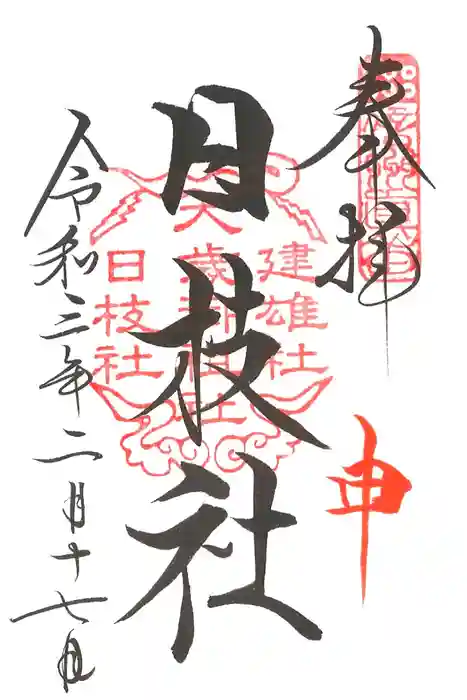 奉拝
申
建雄社
大歳御祖社
日枝社
日枝社
令和三年二月十七日